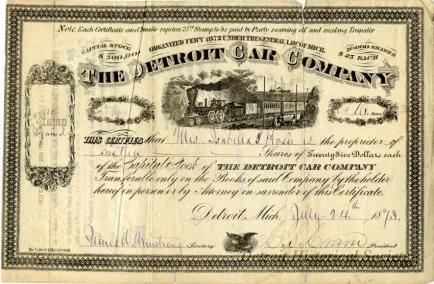 Note. Each Certificate and Transfer requires 25 ct Stamp to be paid by Party receiving it and making Transfer
ORGANIZED FEB'Y 1872 UNDER THE GENERAL LAW OF MICH.
CAPITAL STOCK $500,000
20,000 SHARES $25 EACH
THE DETROIT CAR COMPANY
10
THIS CERTIFIES that Mrs. Isabella is the proprietor of
Shares of Twenty Five Dollars each
of the Capital Stock of THE DETROIT CAR COMPANY
Transferable only on the Books of said Company by the holder
hereof in person or by Attorney on surrender of this Certificate.
Detroit, Mich. July 24th 1873.
James Armstrong Secretary
President
Detroit Historical Society